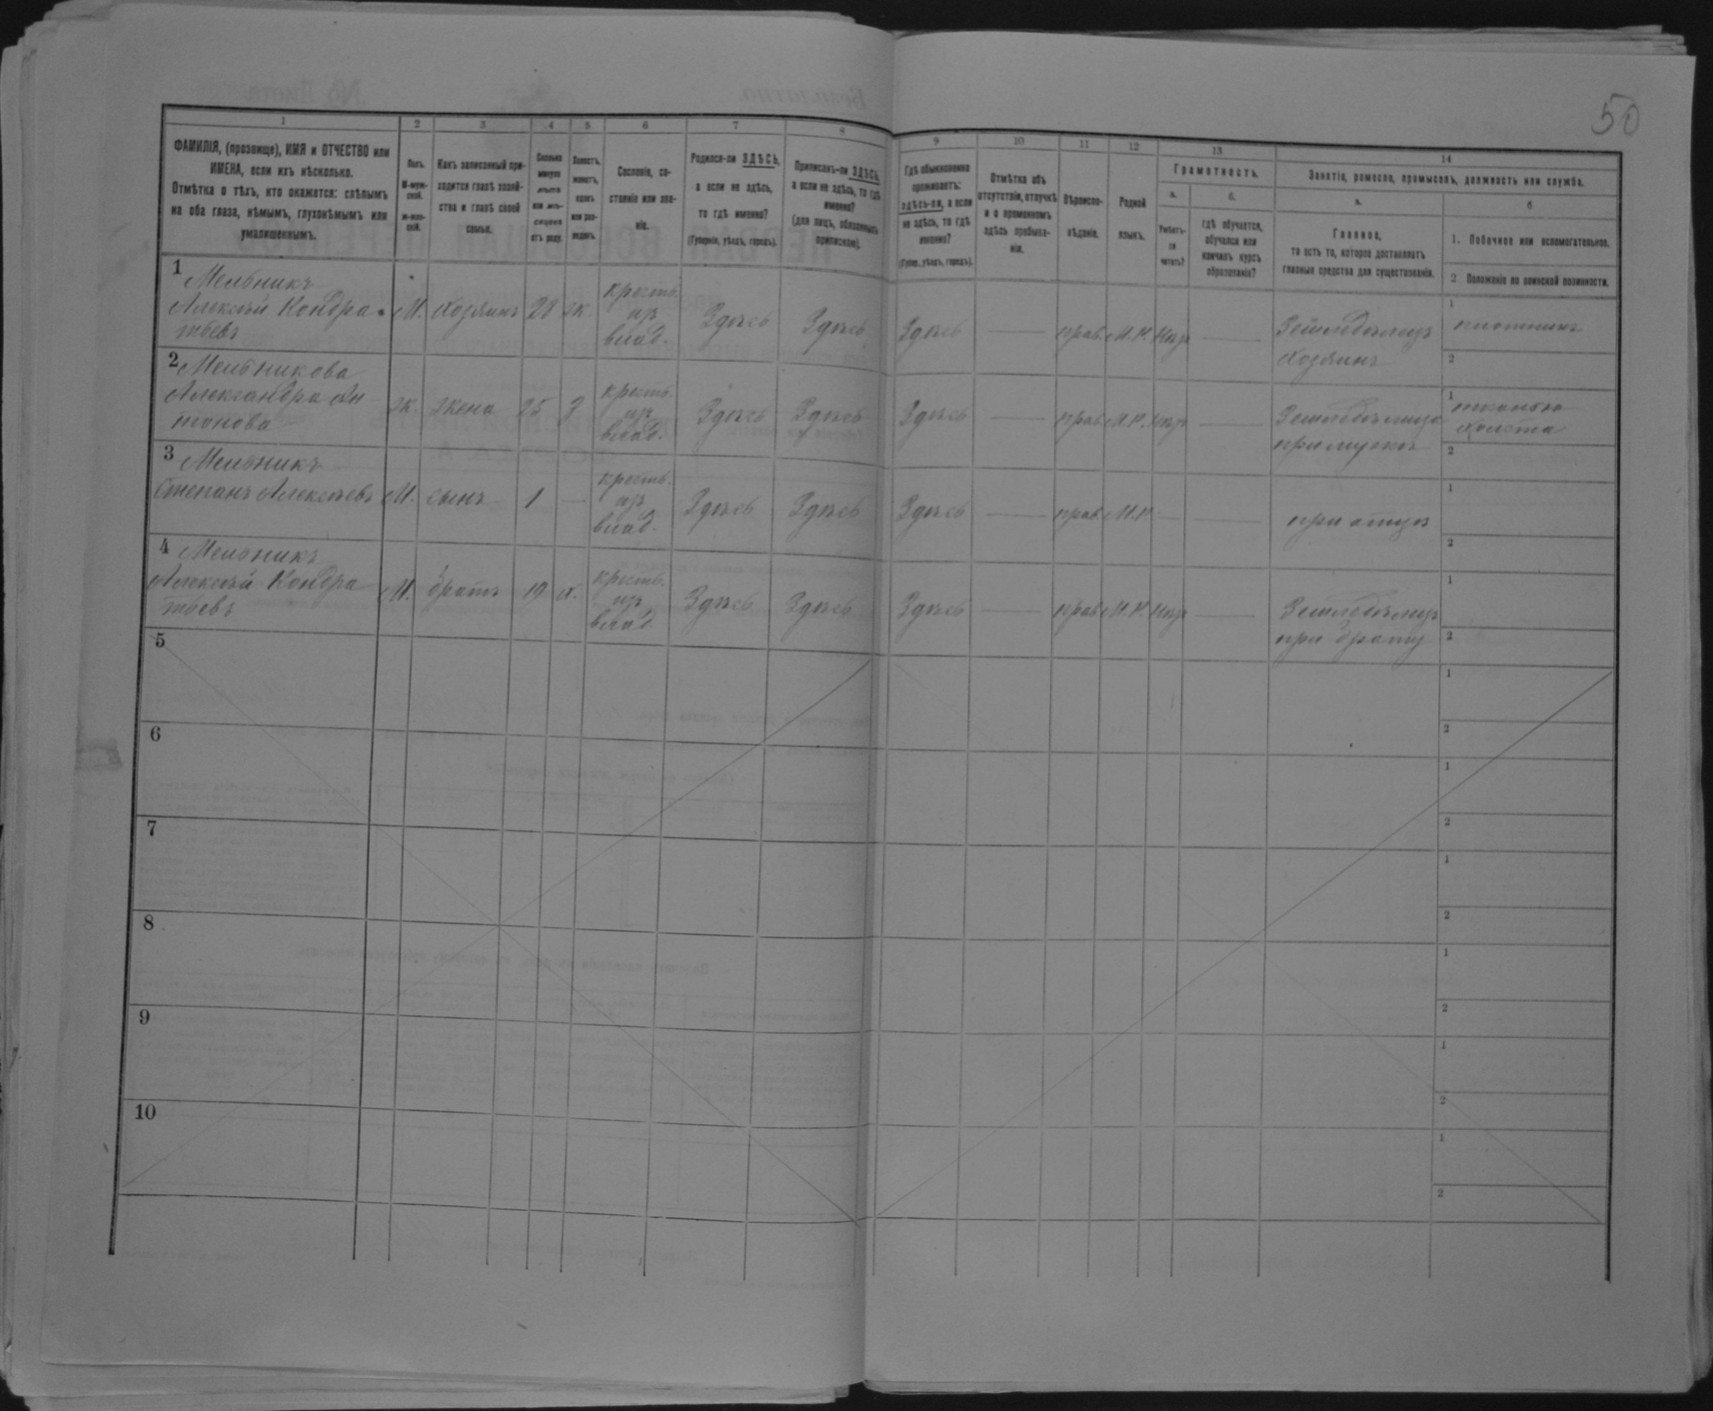 50
1 2 3 4 5 6 7 8 9 10 11 12 13 14
ФАМИЛІЯ, (прозвище), ИМЯ и ОТЧЕСТВО или
ИМЕНА, если ихъ нѣсколько.
Отмѣтка о тѣхъ, кто окажется: слѣпымъ
на оба глаза, нѣмымъ, глухонѣмымъ или
умалишеннымъ.
Полъ.
М-муж-
ской.
ж-жен-
скій.
Какъ записанный при-
ходится главѣ хозяй-
ства и главѣ своей
семьи.
Сколько
минуло
лѣтъ
или мѣ-
сяцевъ
отъ роду.
Холостъ,
женатъ,
вдовъ
или раз-
веденъ.
Сословіе, со-
стояніе или зва-
ніе.
Родился-ли ЗДѢСЬ,
а если не здѣсь,
то гдѣ именно?
(Губернія, уѣздъ, городъ).
Приписанъ-ли ЗДѢСЬ,
а если не здѣсь, то гдѣ
именно?
(для лицъ, обязанныхъ
припискою).
Гдѣ обыкновенно
проживаетъ:
здѣсь-ли, а если
не здѣсь, то гдѣ
именно?
(Губер., уѣздъ, городъ).
Отмѣтка объ
отсутствіи, отлучкѣ
и о временномъ
здѣсь пребыва-
ніи.
Вѣроиспо-
вѣданіе.
Родной
языкъ.
Грамотность.
а.
Умѣетъ-
ли
читать?
б.
гдѣ обучается,
обучался или
кончилъ курсъ
образованія?
Занятіе, ремесло, промыселъ, должность или служба.
а.
Главное,
то есть то, которое доставляетъ
главныя средства для существованія.
б
1. Побочное или вспомогательное.
2 Положеніе по воинской повинности.
1 Мельникъ
Алексѣй Кондра- М. Хозяинъ 28 ж. крестъ. из влад. Здѣсь Здѣсь Здѣсь — прав. М.Р. Негр — Земледѣлецъ 1 плотникъ
тьевъ Хозяинъ 2
2 Мельникова
Александра Ан Ж. Жена 25 З крестъ. из влад. Здѣсь Здѣсь Здѣсь — прав. М.Р. Негр — Земледѣлица 1 тканью
тонова при мужѣ холста 2
3 Мельникъ
Степанъ Алексѣевъ М. сынъ 1 — крестъ. из влад. Здѣсь Здѣсь Здѣсь — прав. М.Р. — — при отцѣ 1
2
4 Мельникъ
Алексѣй Кондра М. братъ 19 х. крестъ. из влад Здѣсь Здѣсь Здѣсь — прав. М.Р. Негр — Земледѣлецъ 1
тьевъ при брату 2
5 1
2
6 1
2
7 1
2
8 1
2
9 1
2
10 1
2